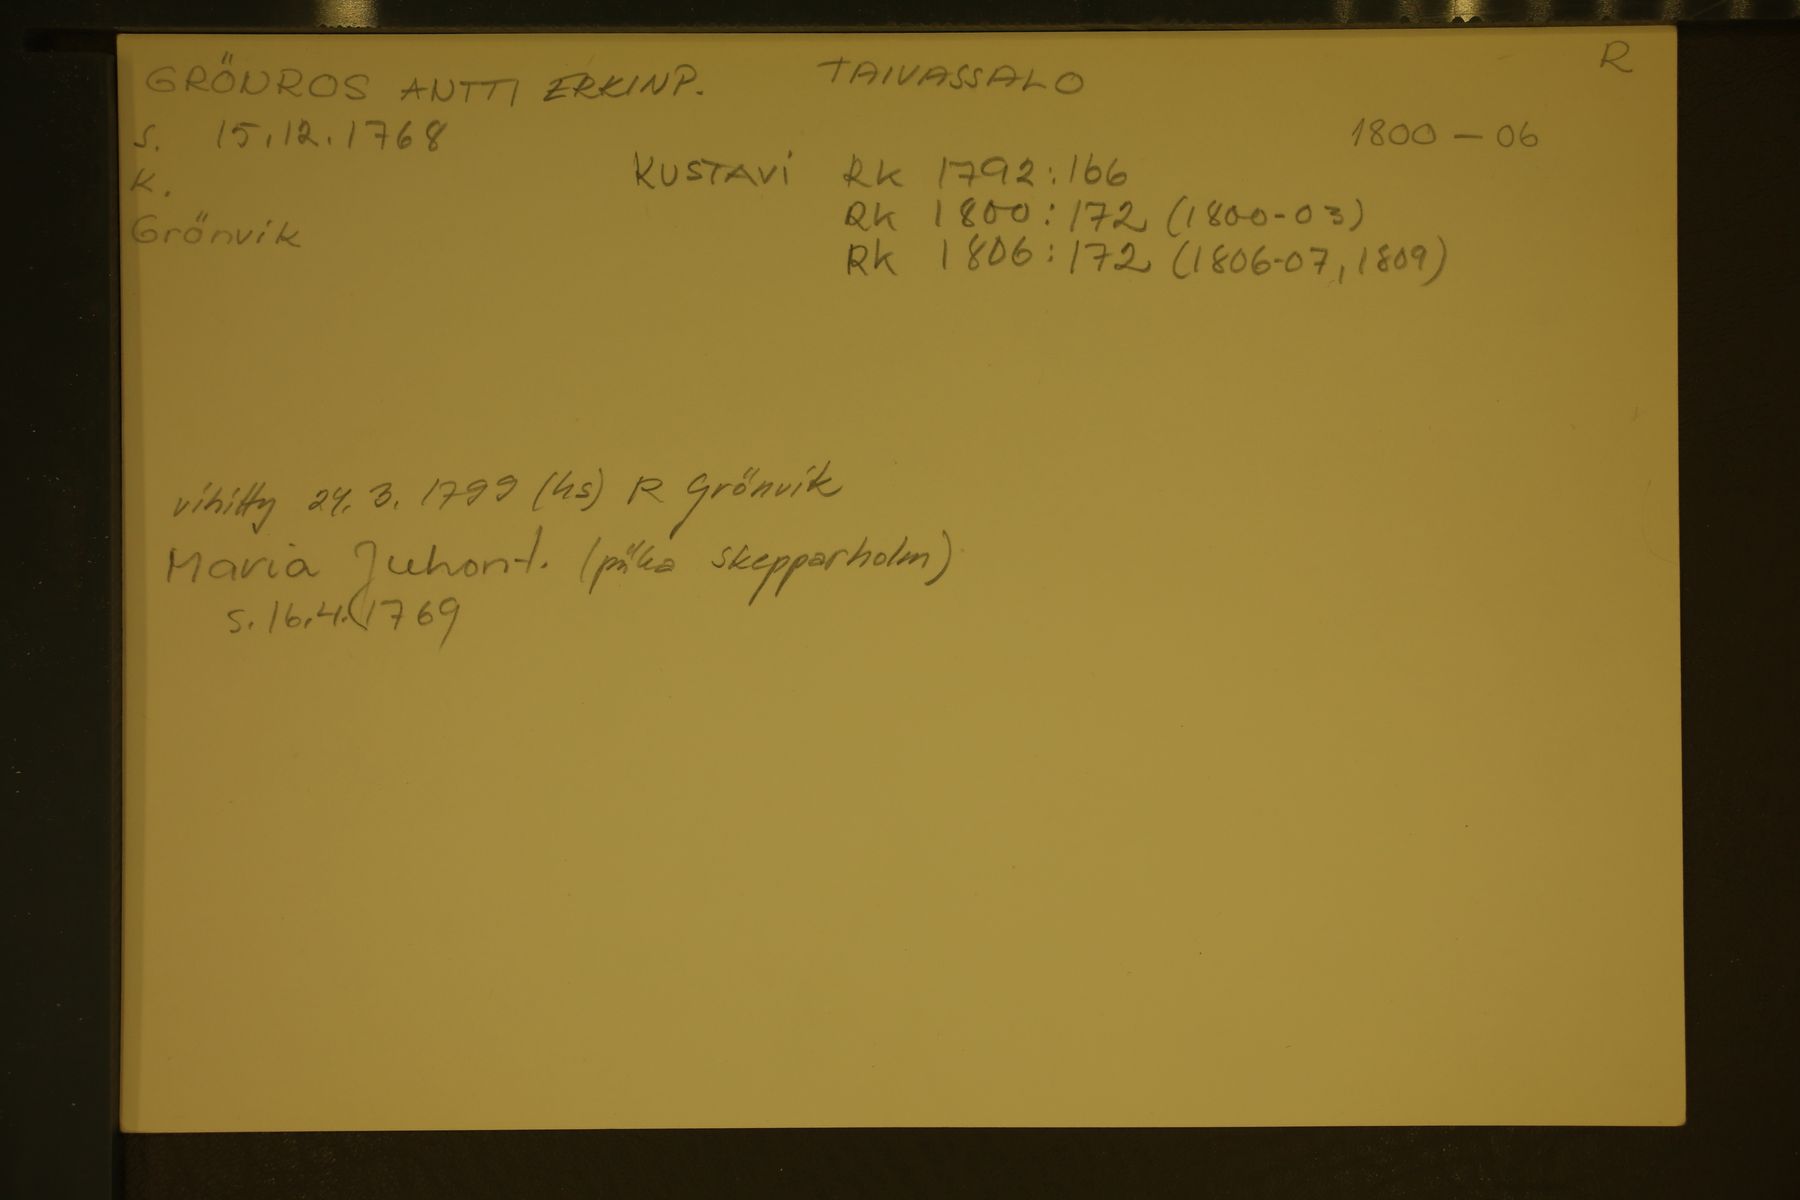 R
GRÖNROS ANTTI ERKINP. TAIVASSALO
s. 15.12.1768 1800 - 06
K. KUSTAVI RK 1792:166
RK 1800:172 (1800-03)
Grönvik
RK 1806:172 (1806-07, 1809)
vihitty 24.3.1799 (ks) R Grönvik
Maria Juhont. (piika Skepparholm)
s. 16.4.1769